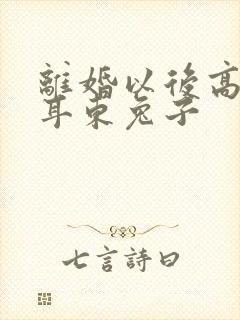 離婚以後高
耳東兔子
七言詩曰